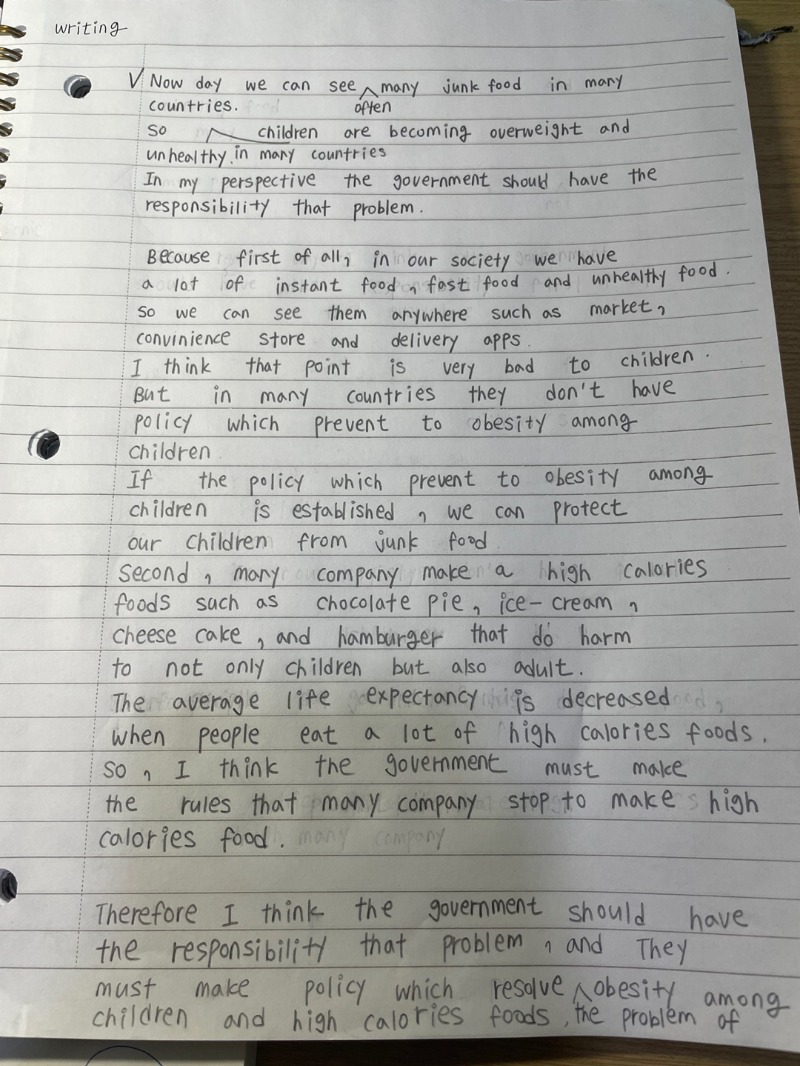 writing
V Now day we can see ^ many junk food in many
countries. often
so children are becoming overweight and
unhealthy in many countries
In my perspective the government should have the
responsibility that problem.
Because first of all, in our society we have
a lot of instant food, fast food and unhealthy food.
so we can see them anywhere such as market,
convinience store and delivery apps.
I think that point is very bad to children.
But in many countries they don't have
policy which prevent to obesity among
children
If the policy which prevent to obesity among
children is established, we can protect
our children from junk food
Second, many company make a high calories
foods such as chocolate pie, ice-cream,
cheese cake, and hamburger that do harm
to not only children but also adult.
The average life expectancy is decreased
when people eat a lot of high calories foods.
So, I think the government must make
the rules that many company stop to make high
calories food.
Therefore I think the government should have
the responsibility that problem, and They
must make policy which resolve ^ obesity among
children and high calories foods. the problem of